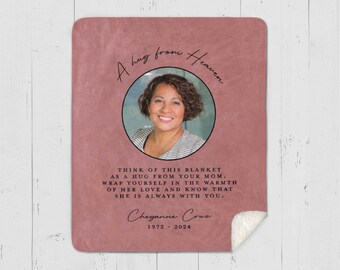 A hug from Heaven
THINK OF THIS BLANKET
AS A HUG FROM YOUR MOM;
WRAP YOURSELF IN THE WARMTH
OF HER LOVE AND KNOW THAT
SHE IS ALWAYS WITH YOU.
Cheyanne Cruz
1972 - 2024